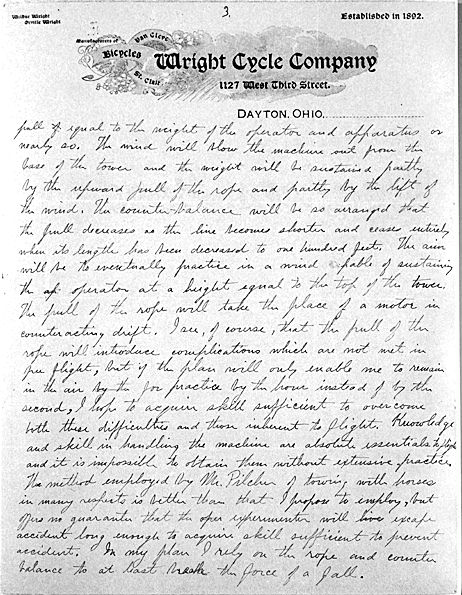 3.
Wilbur Wright
Orville Wright
Established in 1892.
Manufacturers of
Bicycles
Van Cleve
St. Clair
Wright Cycle Company
1127 West Third Street.
DAYTON, OHIO,
pull is equal to the weight of the operator and apparatus or
nearly so. The wind will blow the machine out from the
base of the tower and the weight will be sustained partly
by the upward pull of the rope and partly by the lift of
the wind. The counterbalance will be so arranged that
the pull decreases as the line becomes shorter and ceases entirely
when its length has been decreased to one hundred feet. The aim
will be to eventually practice in a wind capable of sustaining
the operator at a height equal to the top of the tower.
The pull of the rope will take the place of a motor in
counteracting drift. I see, of course, that the pull of the
rope will introduce complications which are not met in
free flight, but if the plan will only enable me to remain
in the air by the for practice by the hour instead of by the
second, I hope to acquire skill sufficient to overcome
both these difficulties and those inherent to flight. Knowledge
and skill in handling the machine are absolute essentials to flight
and it is impossible to obtain them without extensive practice.
The method employed by Mr. Pilcher of towing with horses
in many respects is better than that I propose to employ, but
offers no guarantee that the experimenter will escape
accident long enough to acquire skill sufficient to prevent
accident. In my plan I rely on the rope and counter
balance to at least break the force of a fall.